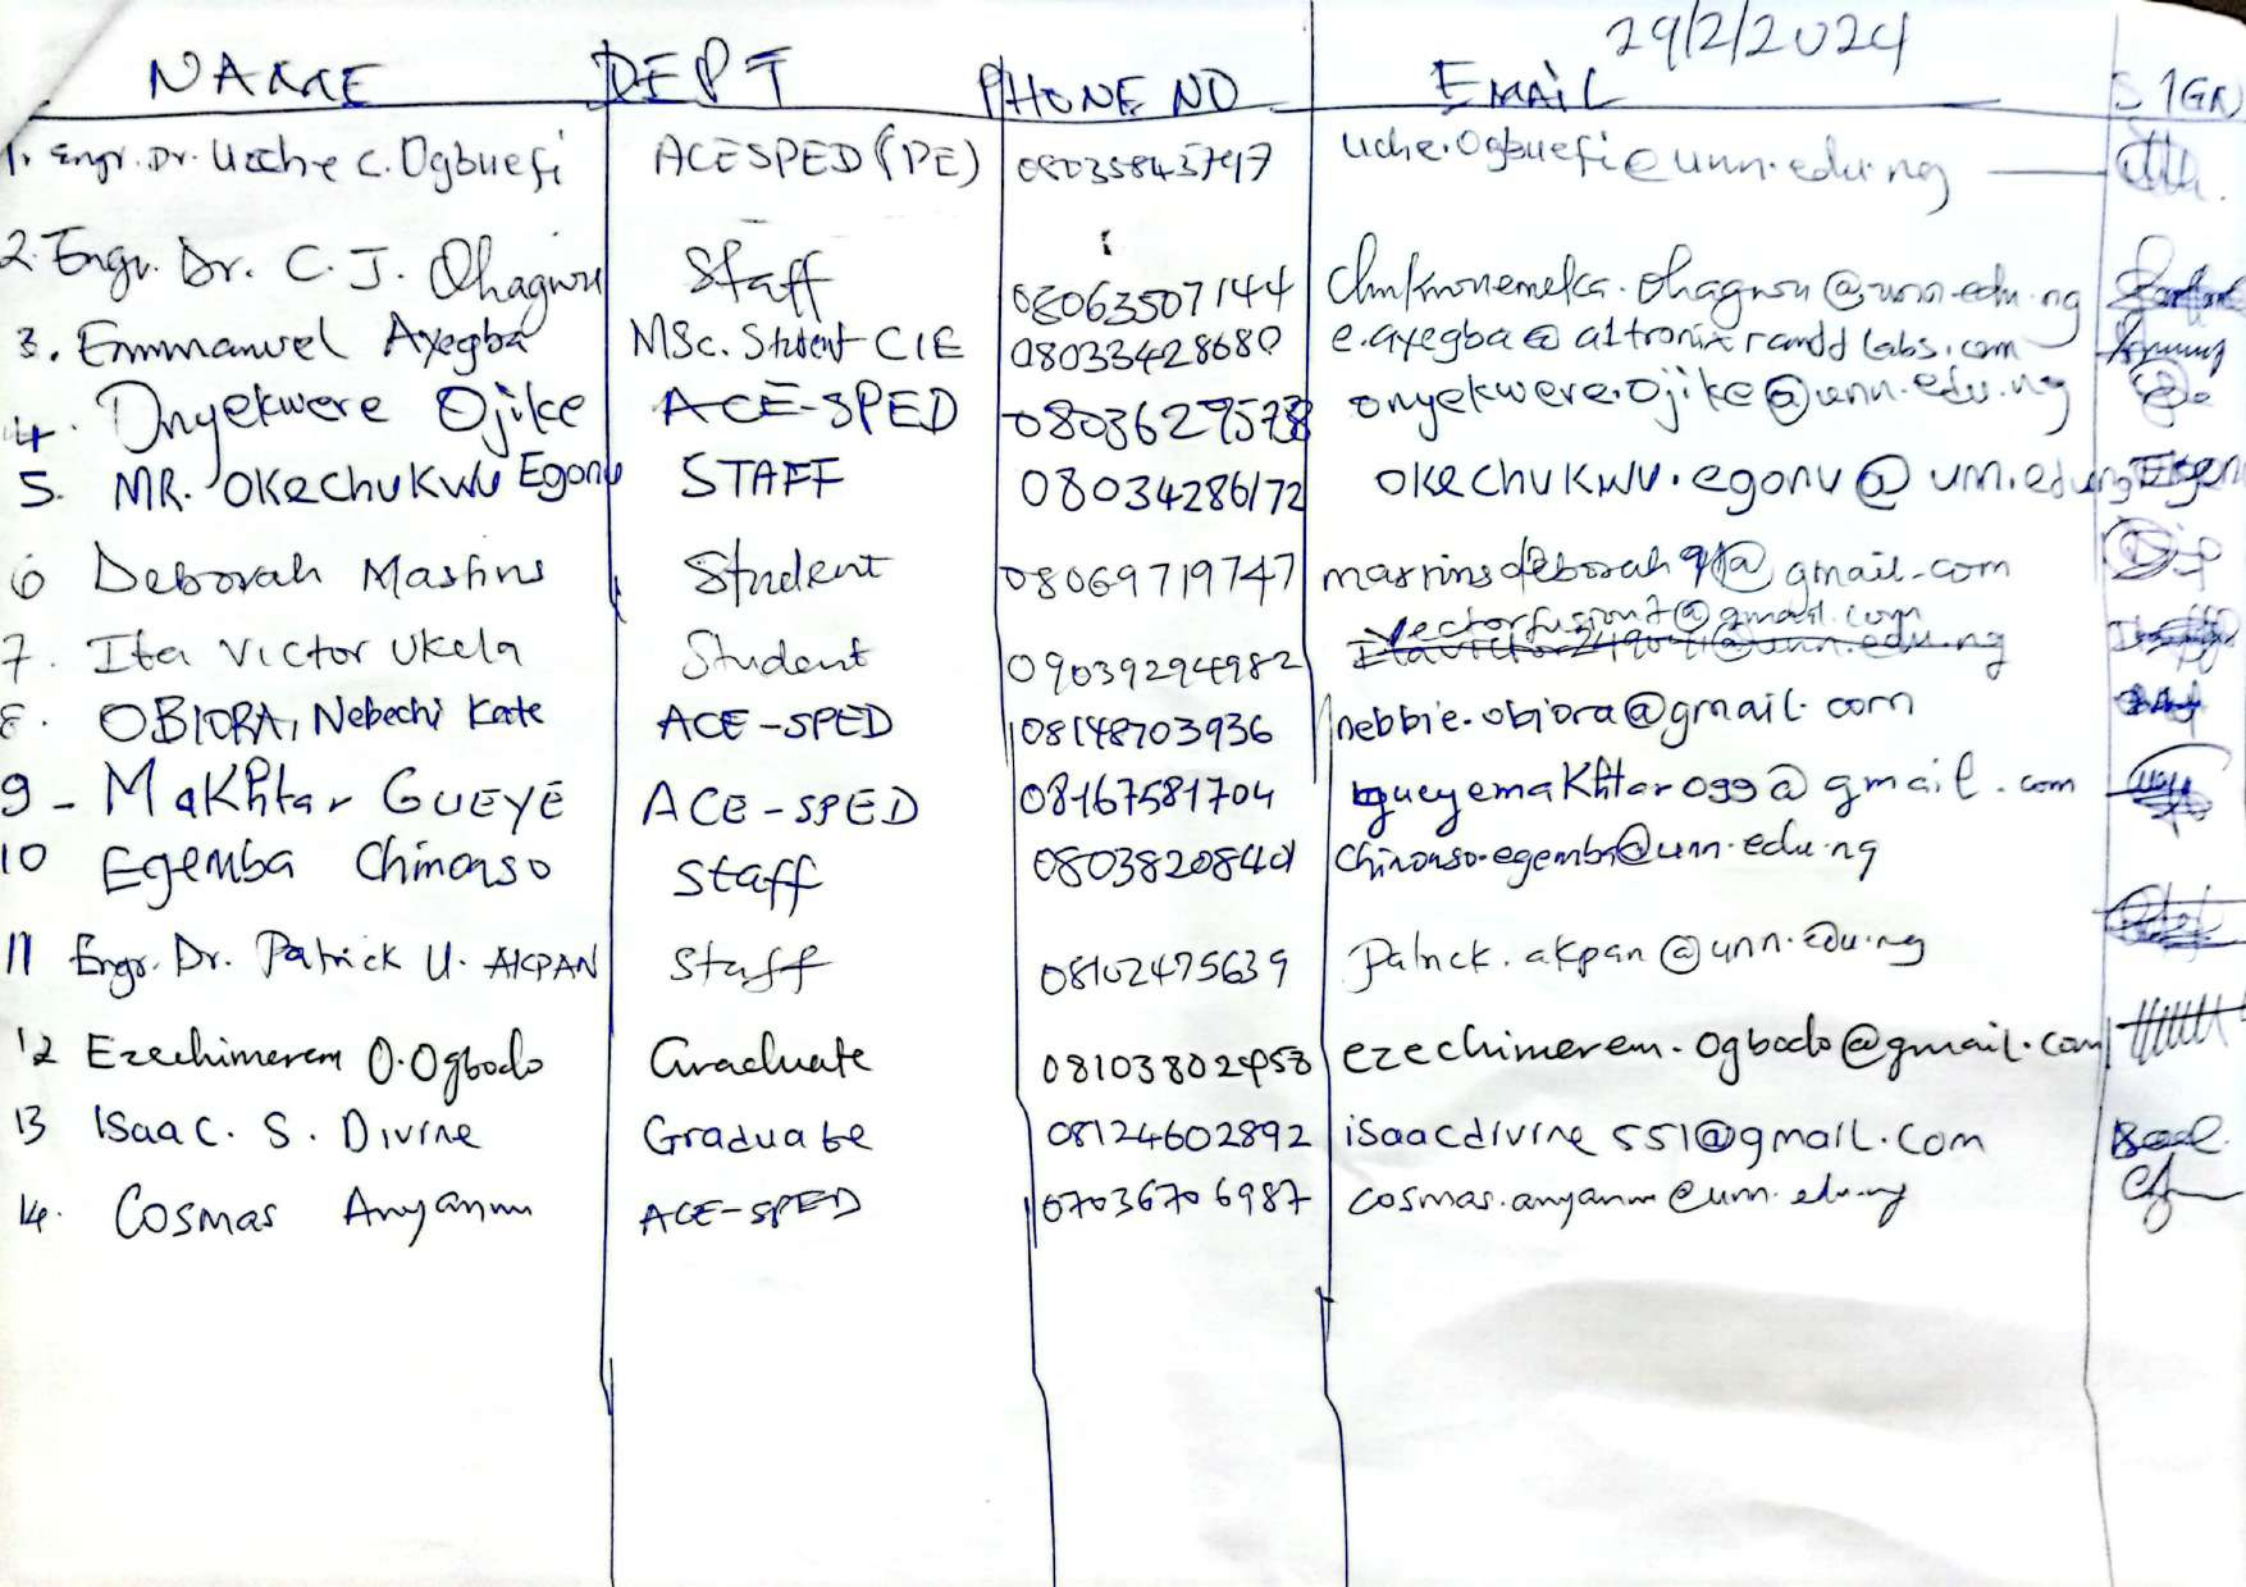 29/2/2024
NAME DEPT PHONE NO EMAIL SIGN
1. Engr. Dr. Uche C. Ogbuefi ACESPED (PE) uche.ogbuefi@unn.edu.ng
2. Engr. Dr. C. J. Ohagwu Staff 08063507144 chukwuemeka.ohagwu@unn.edu.ng
3. Emmanuel Ayegba MSc. Student CIE 08033428680 e.ayegba@a1tronixranddlabs.com
4. Onyekwere Ojike ACE-SPED onyekwere.ojike@unn.edu.ng
5. MR. Okechukwu Egonu STAFF 08034286172 okechukwu.egonu@unn.edu.ng
6 Deborah Martins Student 08069719747 gmail.com
7. Ita Victor Ukela Student 09039294982 vectorfusion7@gmail.com
8. OBIORA, Nebechi Kate ACE-SPED 08148703936 nebbie.obiora@gmail.com
9 - Makhtar GUEYE ACE-SPED 08167581704 gueyemakhtar099@gmail.com
10 Egemba Chinonso Staff chinonso.egemba@unn.edu.ng
11 Engr. Dr. Patrick U. AKPAN Staff 08102475639 Patrick.akpan@unn.edu.ng
12 Ezechimerem O. Ogbodo Graduate ezechimerem.ogbodo@gmail.com
13 Isaac. S. Divine Graduate 08124602892 isaacdivine551@gmail.com
14. Cosmas Anyanwu ACE-SPED 07036706987 cosmas.anyanwu@unn.edu.ng